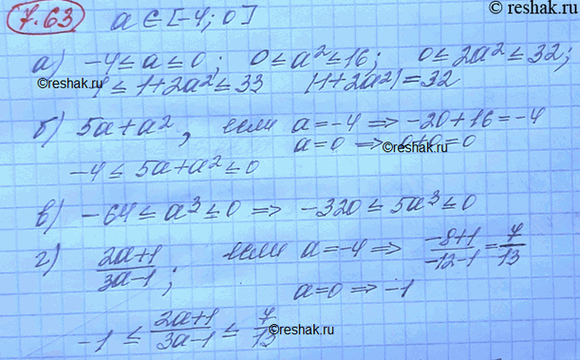 ©Reshak.ru
7.63 a ∈ [-4; 0]
а) -4 ≤ a ≤ 0; 0 ≤ a² ≤ 16; 0 ≤ 2a² ≤ 32;
©reshak.ru
1 ≤ 1+2a² ≤ 33 |1+2a²| = 32
б) 5a+a², если a=-4 ⟹ -20+16=-4
a=0 ⟹ 0+0=0
©reshak.ru
-4 ≤ 5a+a² ≤ 0
в) -64 ≤ a³ ≤ 0 ⟹ -320 ≤ 5a³ ≤ 0
г) (2a+1)/(3a-1); если a=-4 ⟹ (-8+1)/(-12-1) = 7/13
a=0 ⟹ -1
-1 ≤ (2a+1)/(3a-1) ≤ 7/13
©reshak.ru